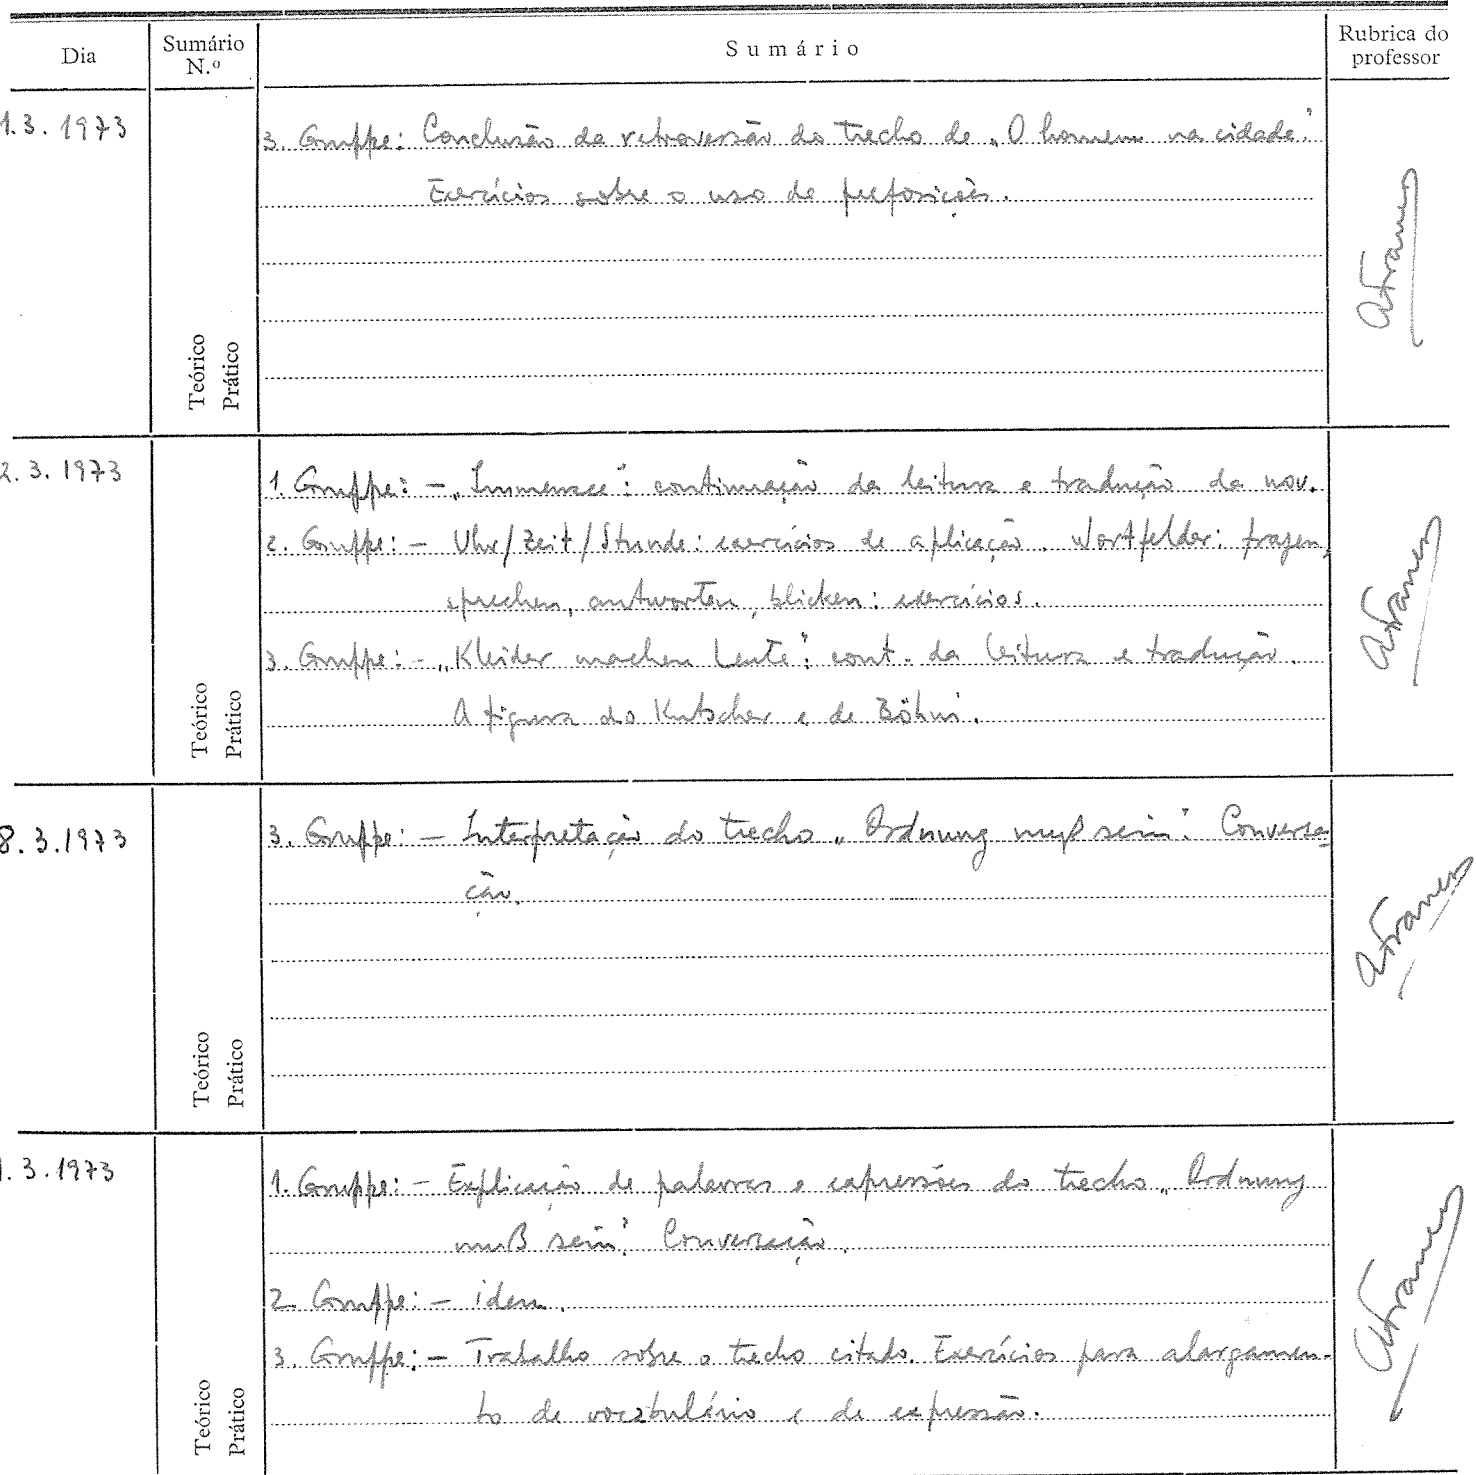 Dia
Sumário N.º
Sumário
Rubrica do professor
1.3.1973
3. Gruppe: Conclusão da retroversão do trecho de „O homem na cidade."
Exercícios sobre o uso de preposições.
Teórico
Prático
2.3.1973
1. Gruppe: – „Immensee": continuação da leitura e tradução da nov.
2. Gruppe: – Uhr/Zeit/Stunde: exercícios de aplicação. Wortfelder: fragen,
sprechen, antworten, blicken: exercícios.
3. Gruppe: – „Kleider machen Leute": cont. da leitura e tradução.
A figura do Kutscher e de Böhni.
Teórico
Prático
8.3.1973
3. Gruppe: – Interpretação do trecho „Ordnung muß sein". Conversa=
ção.
Teórico
Prático
.3.1973
1. Gruppe: – Explicação de palavras e expressões do trecho „Ordnung
muß sein". Conversação.
2. Gruppe: – idem.
3. Gruppe: – Trabalho sobre o trecho citado. Exercícios para alargamen-
to de vocabulário e de expressão.
Teórico
Prático